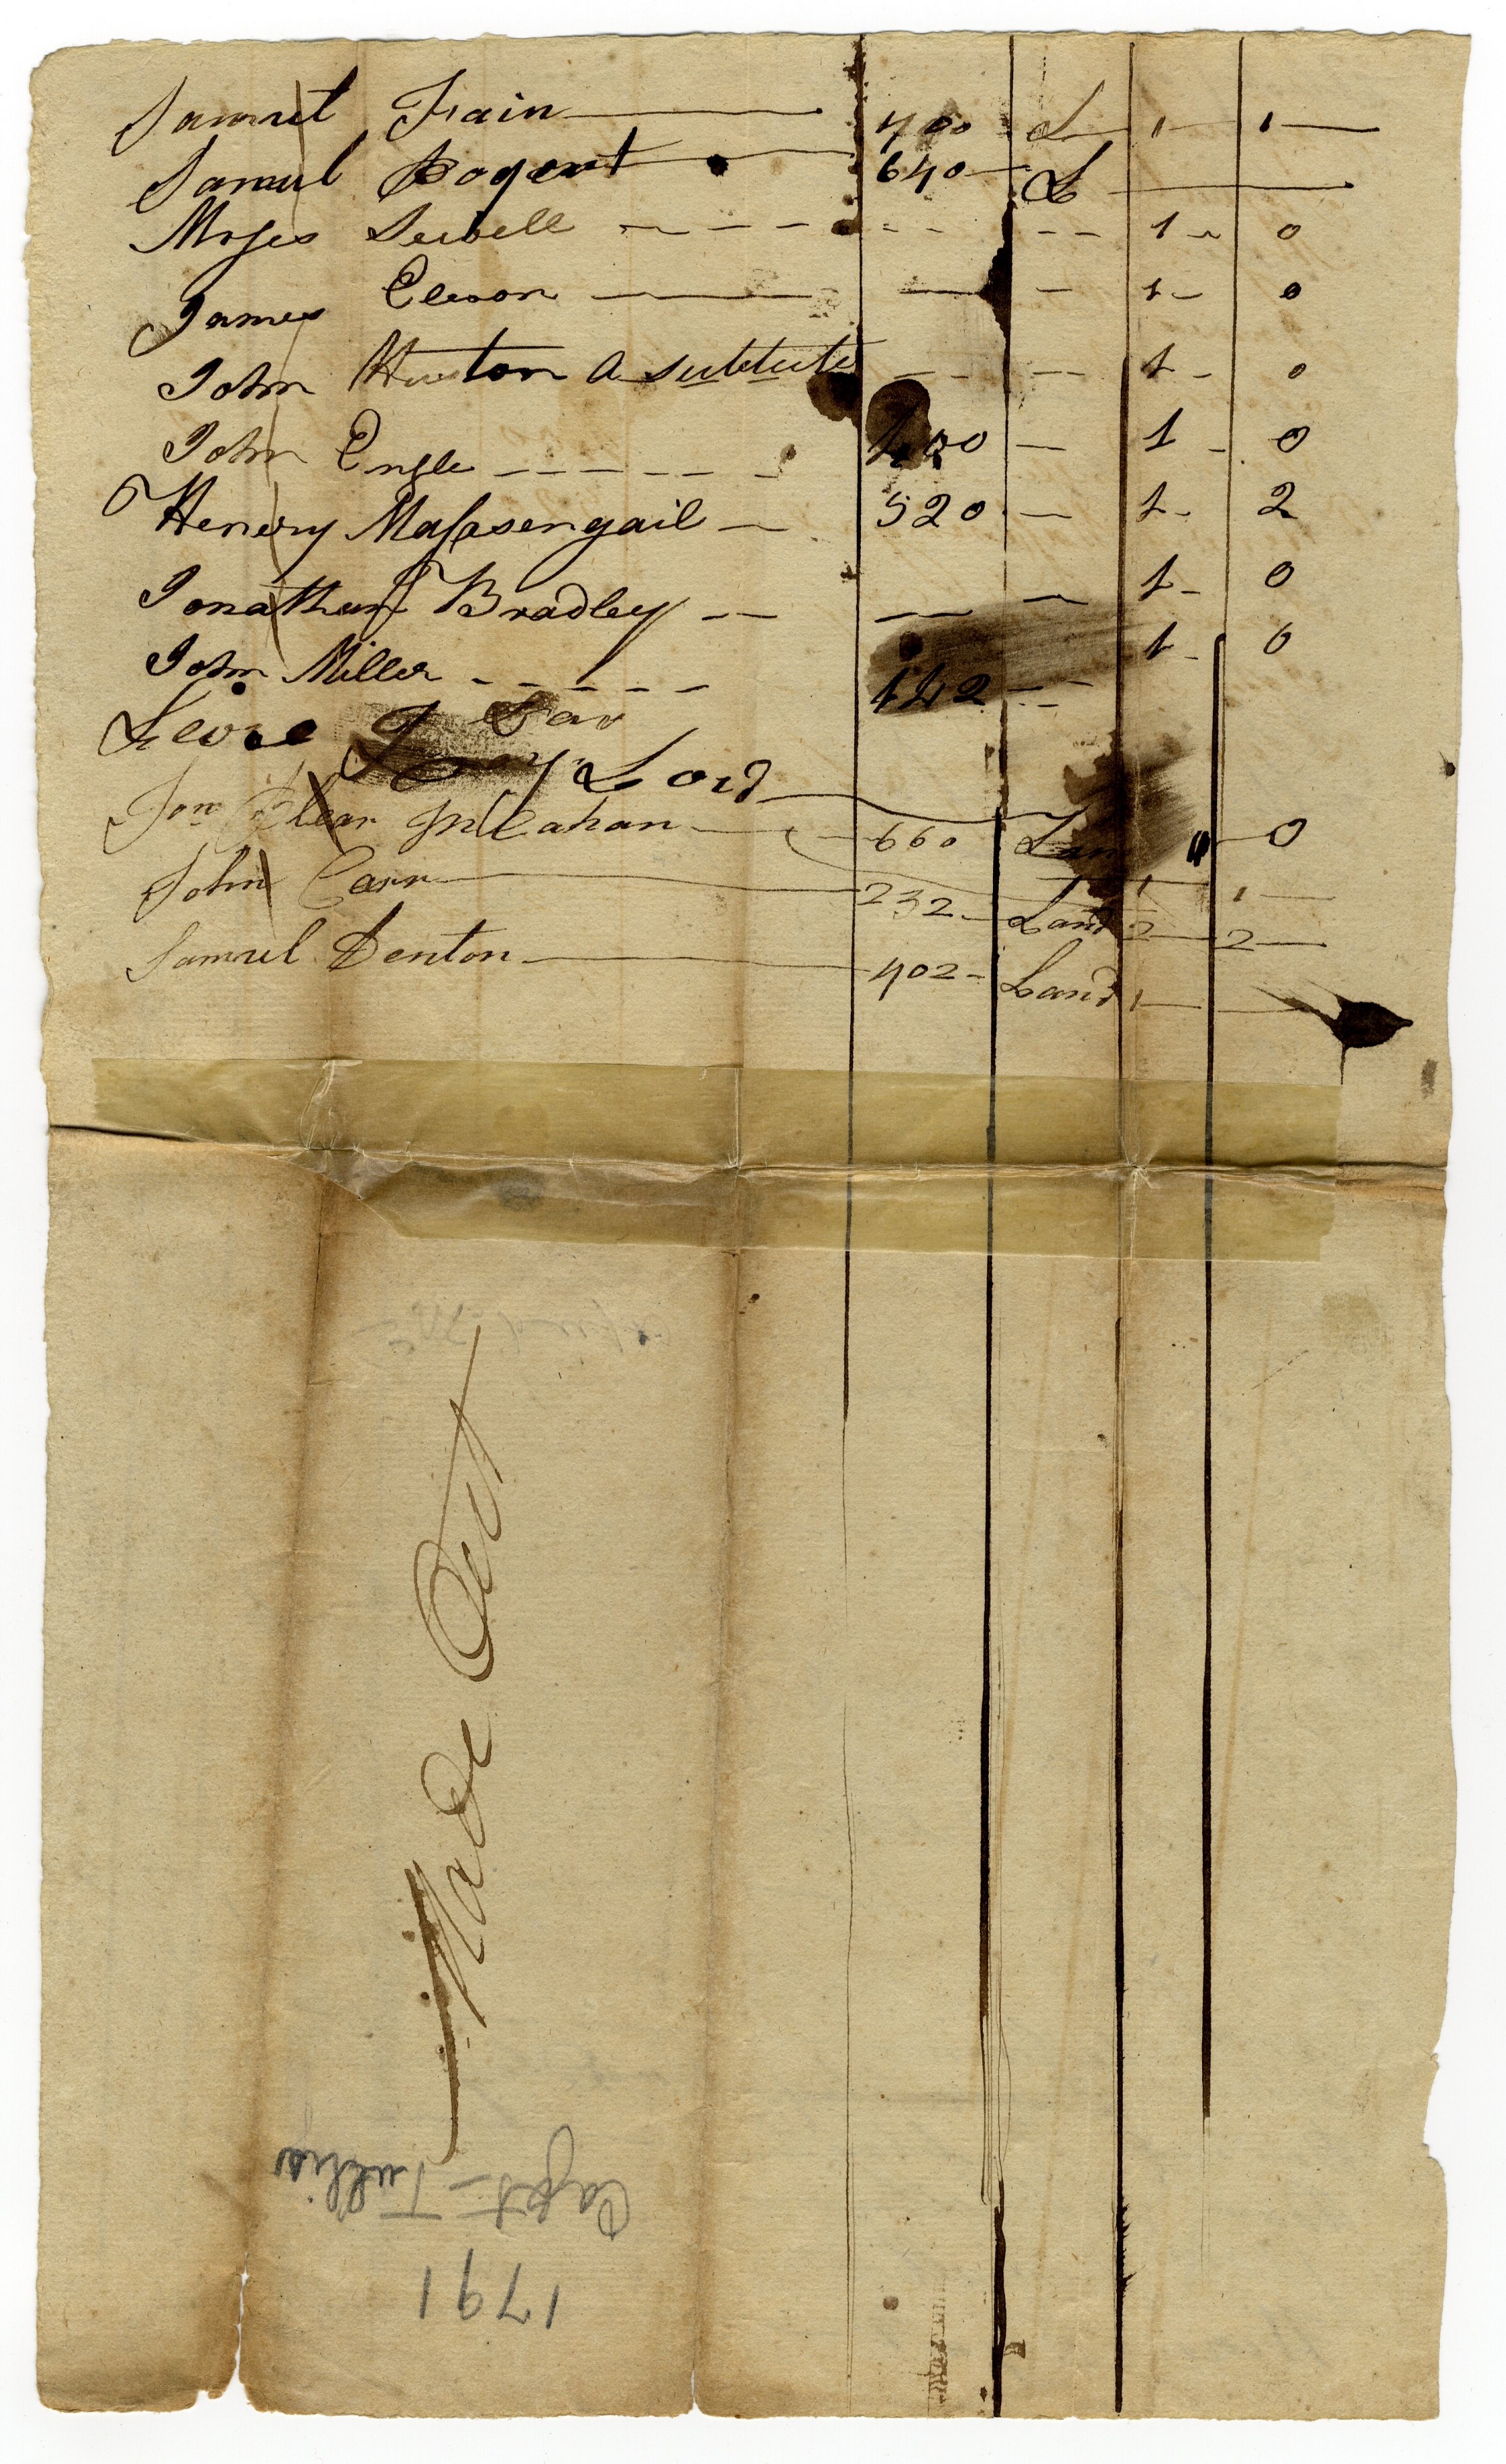 Samuel Fain 400 L 1 1
Samul Bogart 640 L
Moses Sewell 1 0
James Eleson 1 0
John Huston a sutetute 1 0
John Engle 400 1 0
Henery Massengail 520 1 2
Jonathan Bradley 1 0
John Miller 142 1 0
Lord
Jon Blear McCahan 660 Lan 0
John Carr 232 Land 2 2
Samuel Denton 402 Land 1
Made Out
Capt Tullis
1791